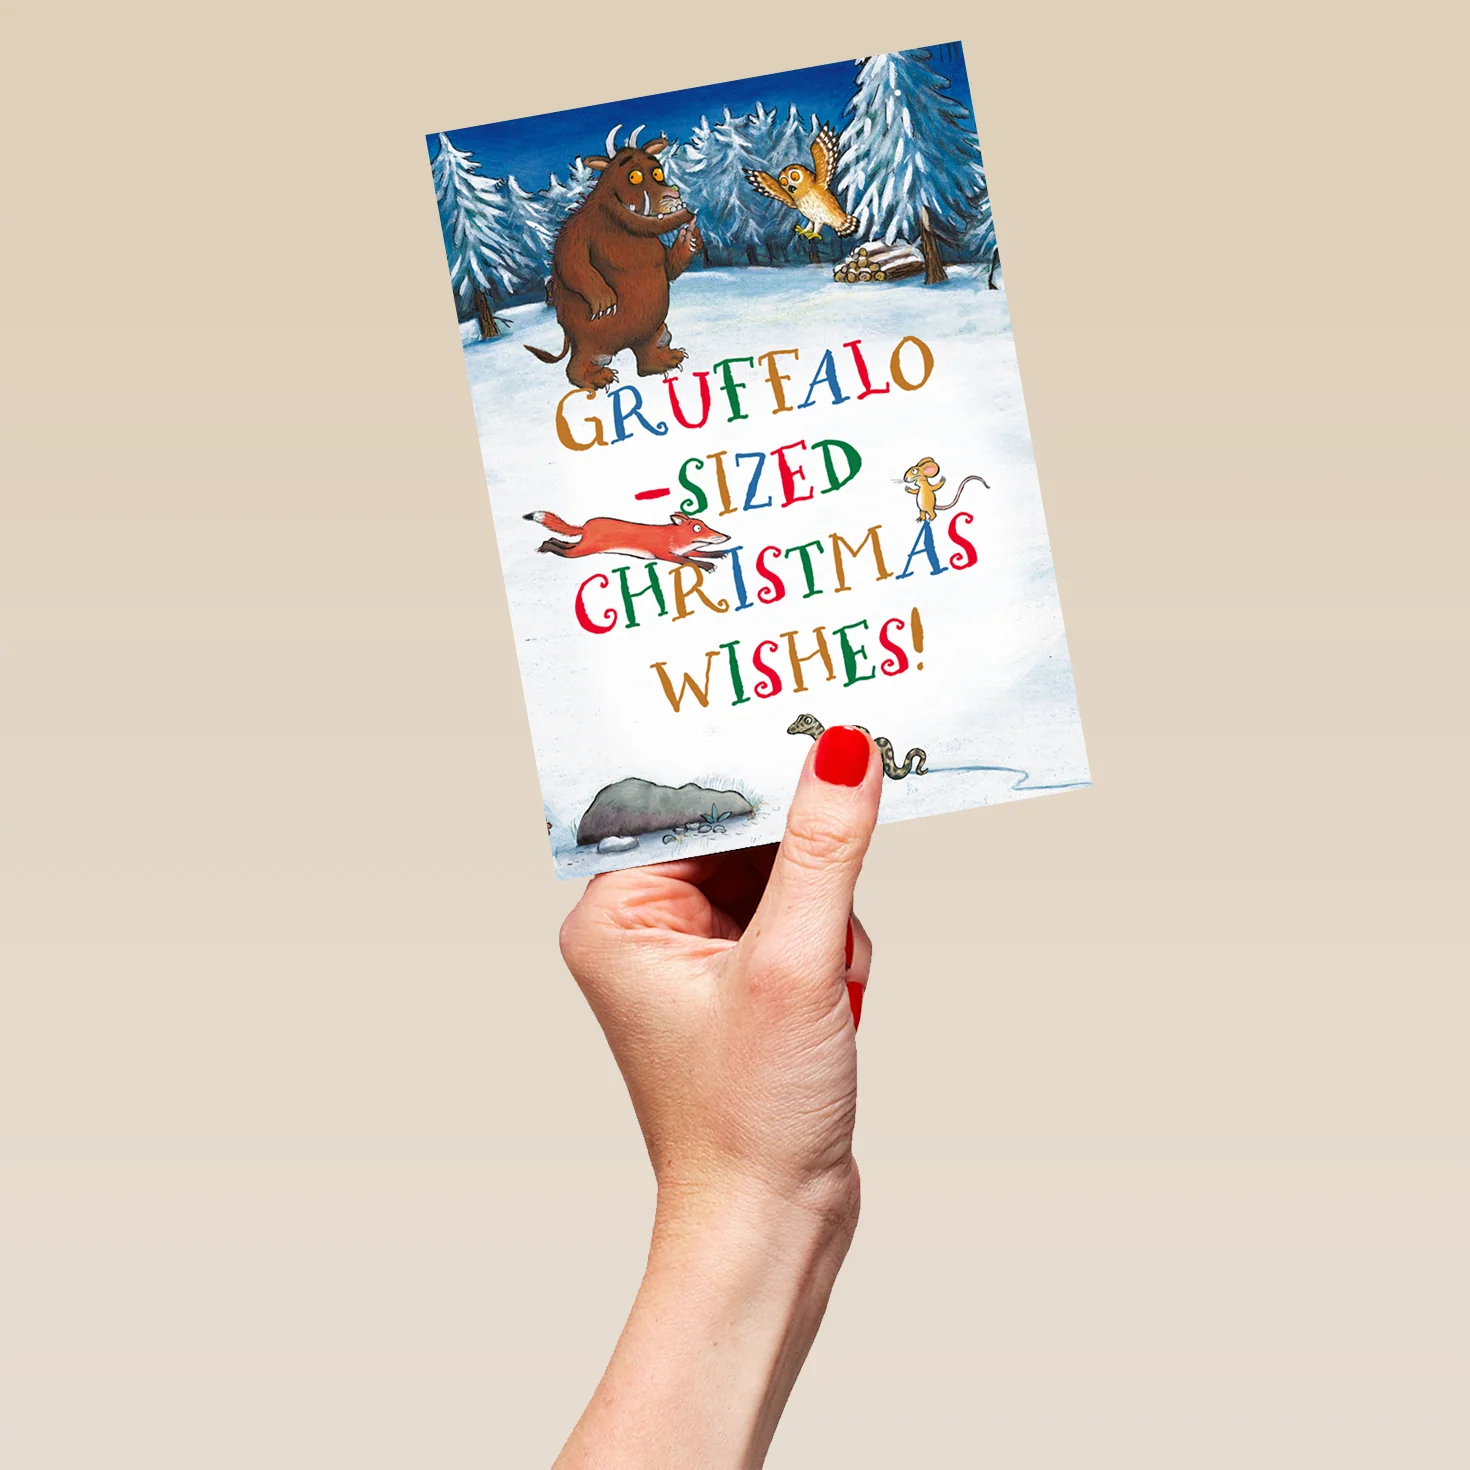 GRUFFALO
-SIZED
CHRISTMAS
WISHES!